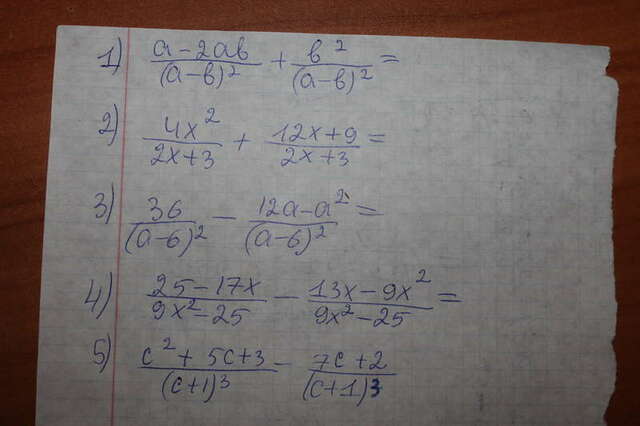 1) (a-2ab)/(a-b)² + b²/(a-b)² =
2) 4x²/(2x+3) + (12x+9)/(2x+3) =
3) 36/(a-6)² - (12a-a²)/(a-6)² =
4) (25-17x)/(9x²-25) - (13x-9x²)/(9x²-25) =
5) (c²+5c+3)/(c+1)³ - (7c+2)/(c+1)³